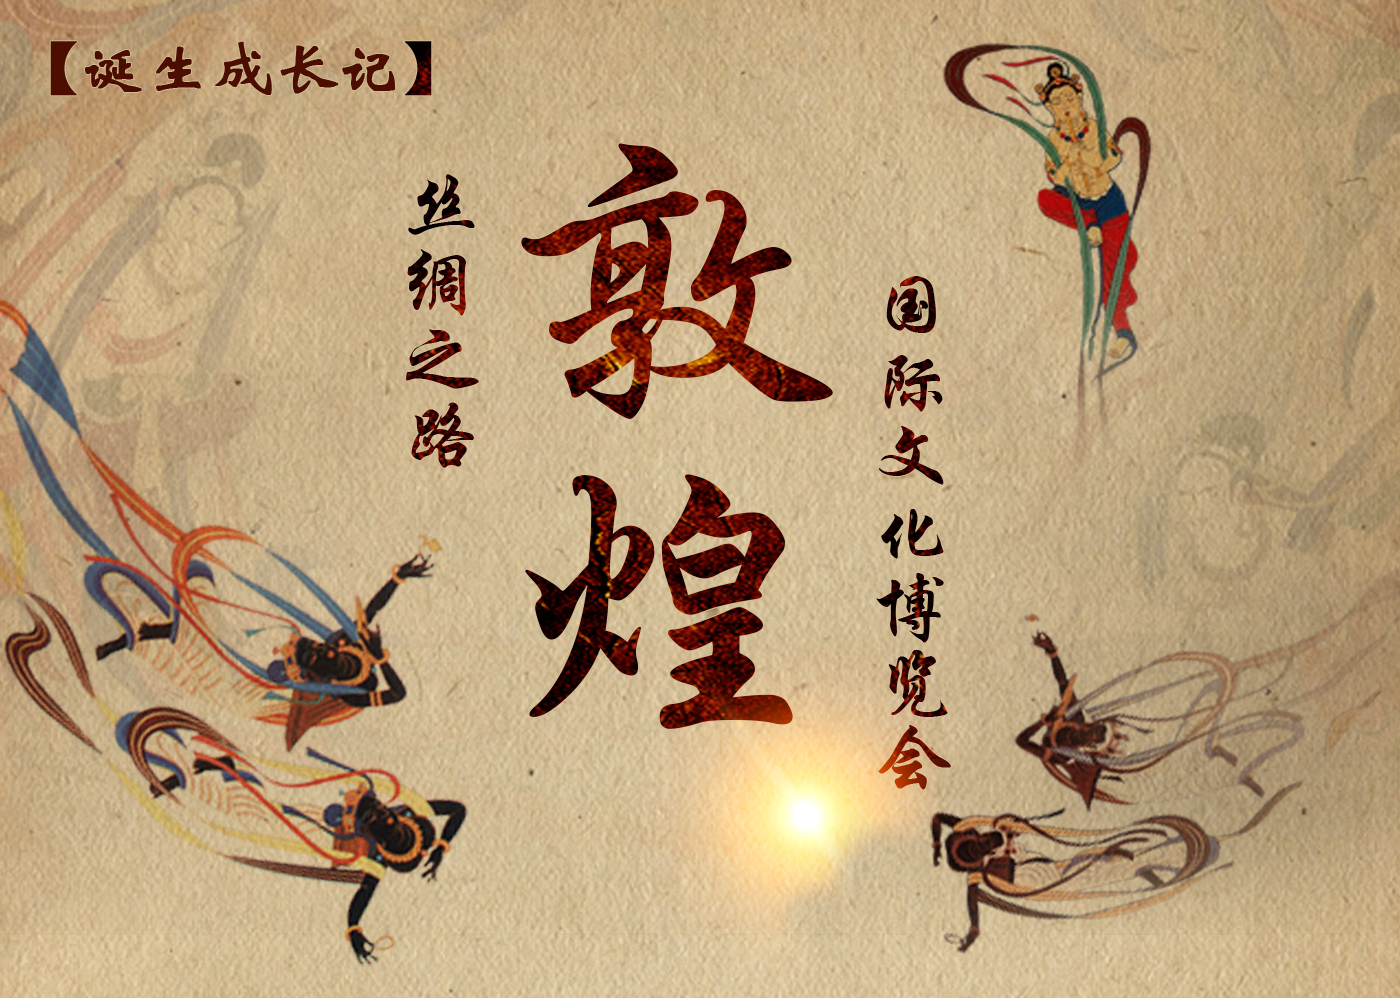 【诞生成长记】
丝绸之路
敦煌
国际文化博览会